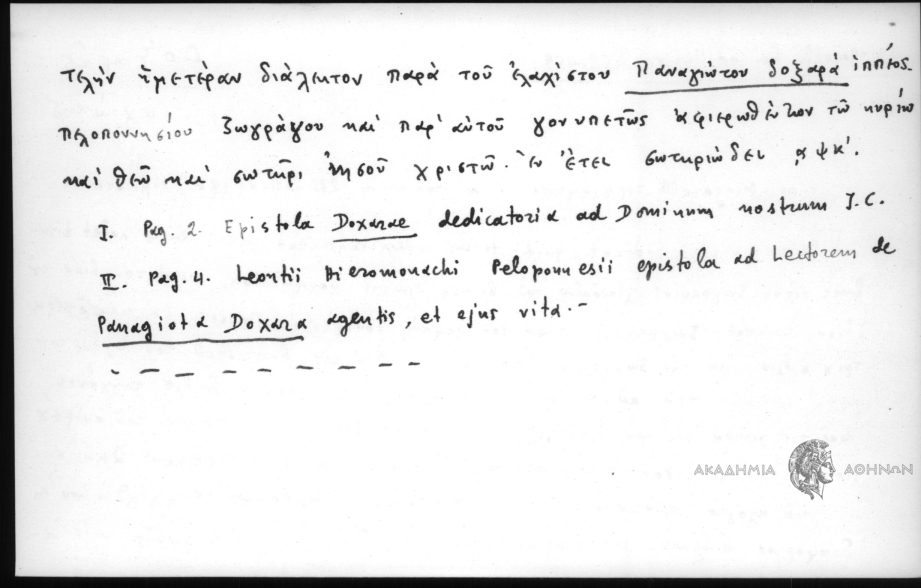 τελὴν ἡμετέραν διάλεκτον παρὰ τοῦ ἐλαχίστου Παναγιώτου δοξαρᾶ ἱππέος
πελοποννησίου ζωγράφου καὶ παρ' αὐτοῦ γονυπετῶς ἀφιερωθέντων τῶ κυρίω
καὶ θεῶ καὶ σωτῆρι ἰησοῦ χριστῶ. ἐν ἔτει σωτηριώδει ͵αψκ'.
I. Pag. 2. Epistola Doxarae dedicatoria ad Dominum nostrum J.C.
II. Pag. 4. Leontii Hieromonachi Peloponnesii epistola ad Lectorem de
Panagiota Doxara agentis, et ejus vita.-
ΑΚΑΔΗΜΙΑ ΑΘΗΝΩΝ